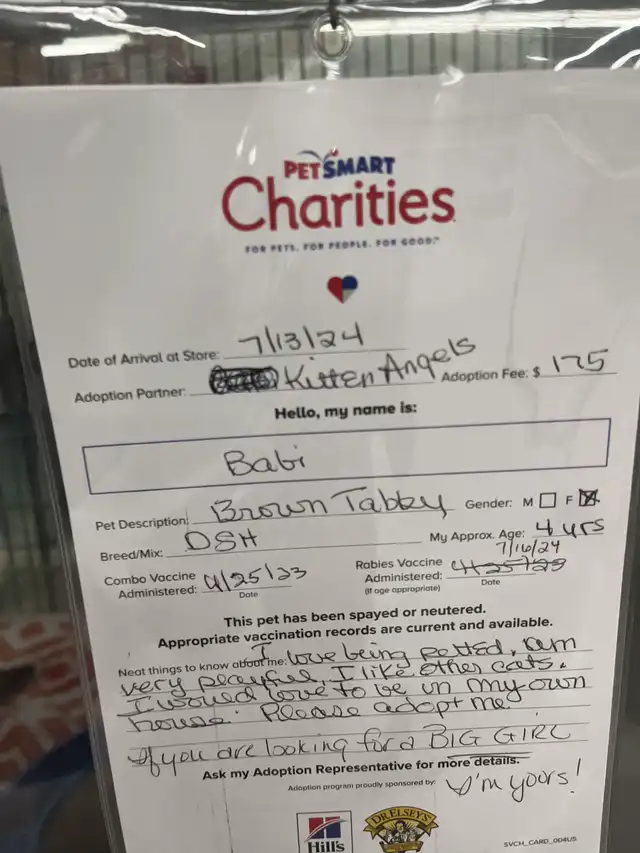 PETSMART
Charities
FOR PETS. FOR PEOPLE. FOR GOOD.™
Date of Arrival at Store: 7/13/24
Adoption Partner: Kitten Angels Adoption Fee: $ 175
Hello, my name is:
Babi
Pet Description: Brown Tabby Gender: M ☐ F ☒
Breed/Mix: DSH My Approx. Age: 4 yrs
7/16/24
Combo Vaccine Administered: 4/25/23 Date
Rabies Vaccine Administered: (If age appropriate) 4/25/23 Date
This pet has been spayed or neutered.
Appropriate vaccination records are current and available.
Neat things to know about me: I love being petted, am
very playful, I like other cats.
I would love to be in my own
house. Please adopt me.
If you are looking for a BIG GIRL
Ask my Adoption Representative for more details.
I'm yours!
Adoption program proudly sponsored by:
Hill's
DR. ELSEY'S
SVCH_CARD_004US